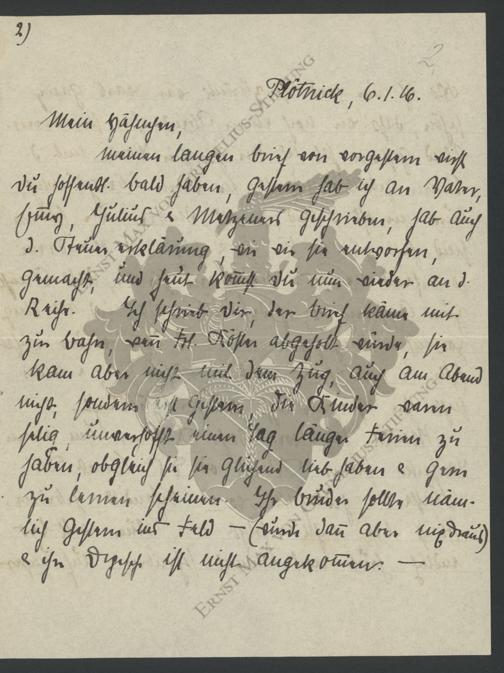 2)
2
Plötnick, 6.1.16.
Mein Hähnchen,
meinen langen brief von vorgestern wirst
du hoffentl. bald haben, gestern hab ich an Vater,
Julius & Metzeners geschrieben, hab auch
d. Steuererklärung, wie wir sie entworfen,
gemacht, und heut kom̄st du nun wieder an d.
Reihe. Ich schrieb Dir, der brief käme mit
zur bahn, wen̄ Frl. Köster abgeholt würde, sie
kam aber nicht mit dem Zug, auch am Abend
nicht, sondern erst gestern, die Kinder waren
selig, unverhofft einen Tag länger Ferien zu
haben, obgleich sie sie glühend lieb haben & gern
zu lernen scheinen. Ihr bruder sollte näm-
lich gestern ins Feld — (wurde dan̄ aber nix draus)
& ihre Depesche ist nicht angekom̄en. —
ERNST MAX VON
STIFTUNG
ERNST MAX VON
STIFTUNG